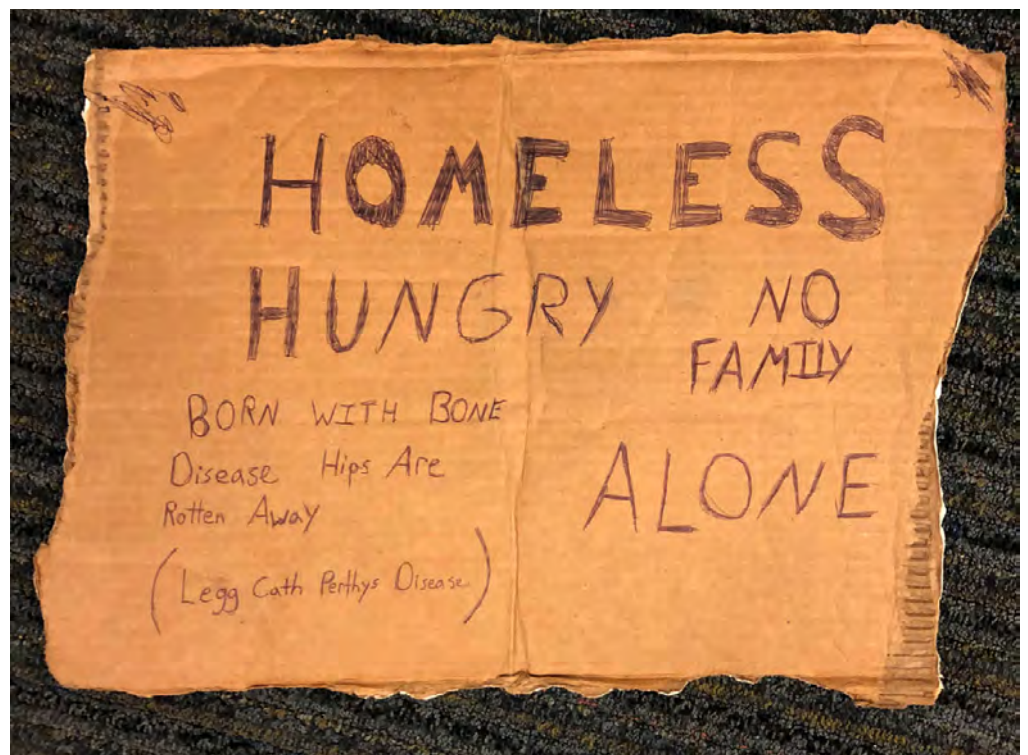 HOMELESS
HUNGRY
NO
FAMILY
BORN WITH BONE
Disease Hips Are
Rotten Away
(Legg Cath Perthys Disease)
ALONE